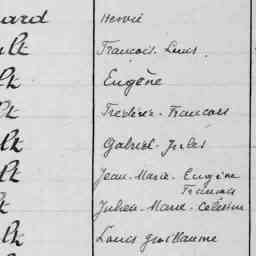 ard Hervé
lt François Louis
lt Eugène
lt Frédéric-François
lt Gabriel-Jules
lt Jean-Marie-Eugène
François
lt Julien-Marie-Célestin
lt Louis Guillaume